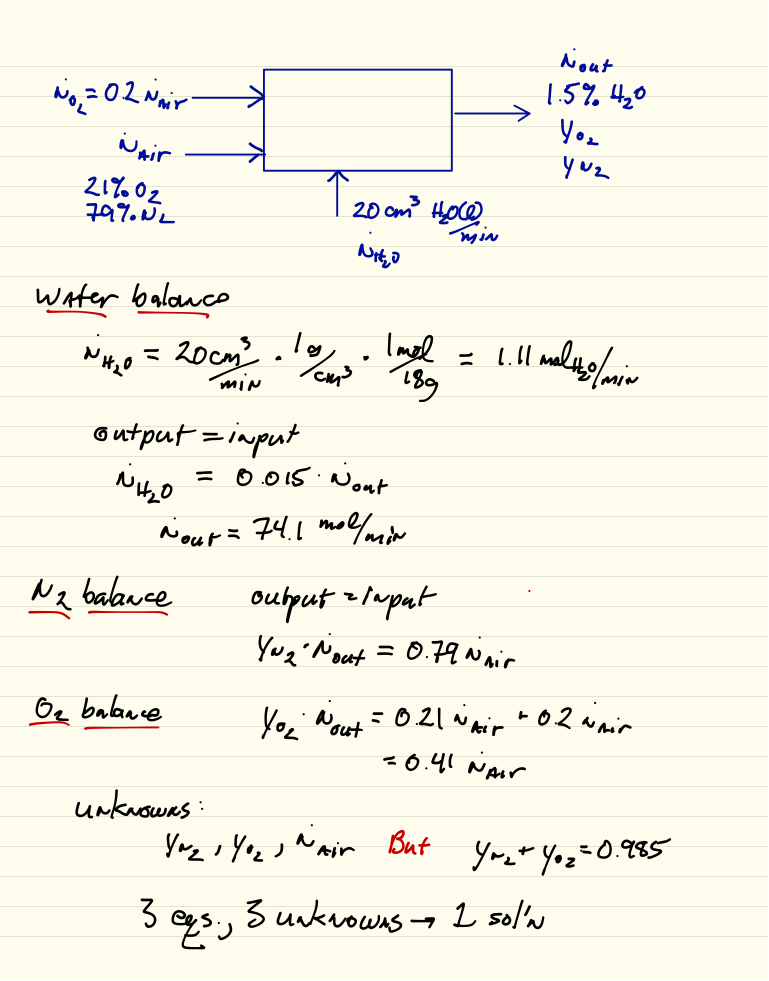 ṅout
ṅO₂ = 0.2 ṅAir
1.5% H₂O
yO₂
ṅAir
yN₂
21% O₂
79% N₂
20 cm³ H₂O(l)/min
ṅH₂O
Water balance
ṅH₂O = 20 cm³/min · 1g/cm³ · 1mol/18g = 1.11 molH₂O/min
output = input
ṅH₂O = 0.015 · ṅout
ṅout = 74.1 mol/min
N₂ balance output = input
yN₂ · ṅout = 0.79 ṅAir
O₂ balance yO₂ · ṅout = 0.21 ṅAir + 0.2 ṅAir
= 0.41 ṅAir
unknowns:
yN₂, yO₂, ṅAir But yN₂ + yO₂ = 0.985
3 eqs., 3 unknowns → 1 sol'n